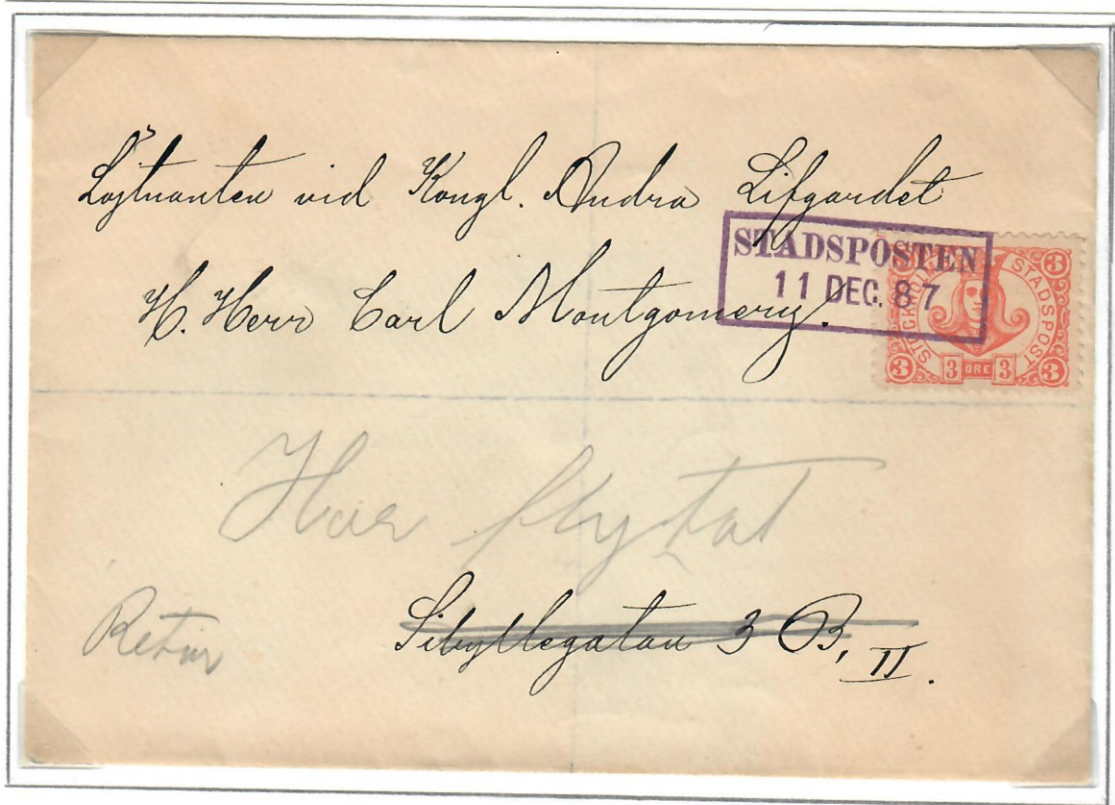 Löjtnanten vid Kongl. Andra Lifgardet
H. Herr Carl Montgomery.
STADSPOSTEN
11 DEC. 87
STOCKHOLMS STADSPOST
3 3
3 ÖRE 3
3 3
Har flyttat
Retur
Sibyllegatan 3 B, II.